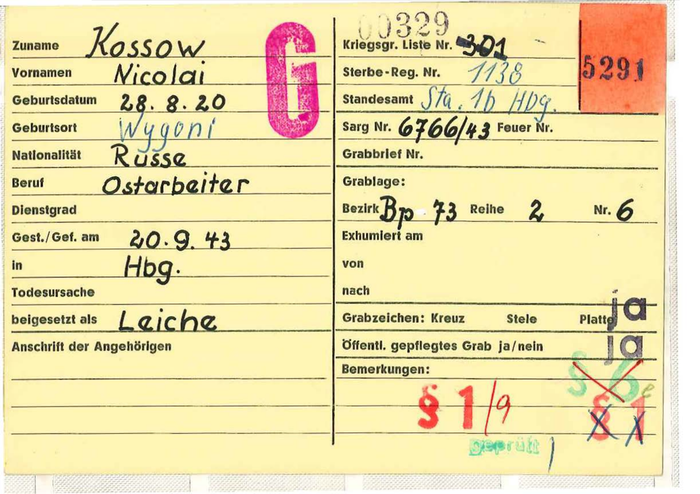 Zuname Kossow
Vornamen Nicolai
Geburtsdatum 28.8.20
Geburtsort Wygoni
Nationalität Russe
Beruf Ostarbeiter
Dienstgrad
Gest./Gef. am 20.9.43
in Hbg.
Todesursache
beigesetzt als Leiche
Anschrift der Angehörigen
G
00329
Kriegsgr. Liste Nr. 301
5291
Sterbe-Reg. Nr. 1138
Standesamt Sta. 1b Hbg.
Sarg Nr. 6766/43 Feuer Nr.
Grabbrief Nr.
Grablage:
Bezirk Bp 73 Reihe 2 Nr. 6
Exhumiert am
von
nach
Grabzeichen: Kreuz Stele Platte ja
Öffentl. gepflegtes Grab ja/nein ja
Bemerkungen:
§ 6
§ 1/9 § 1
geprüft